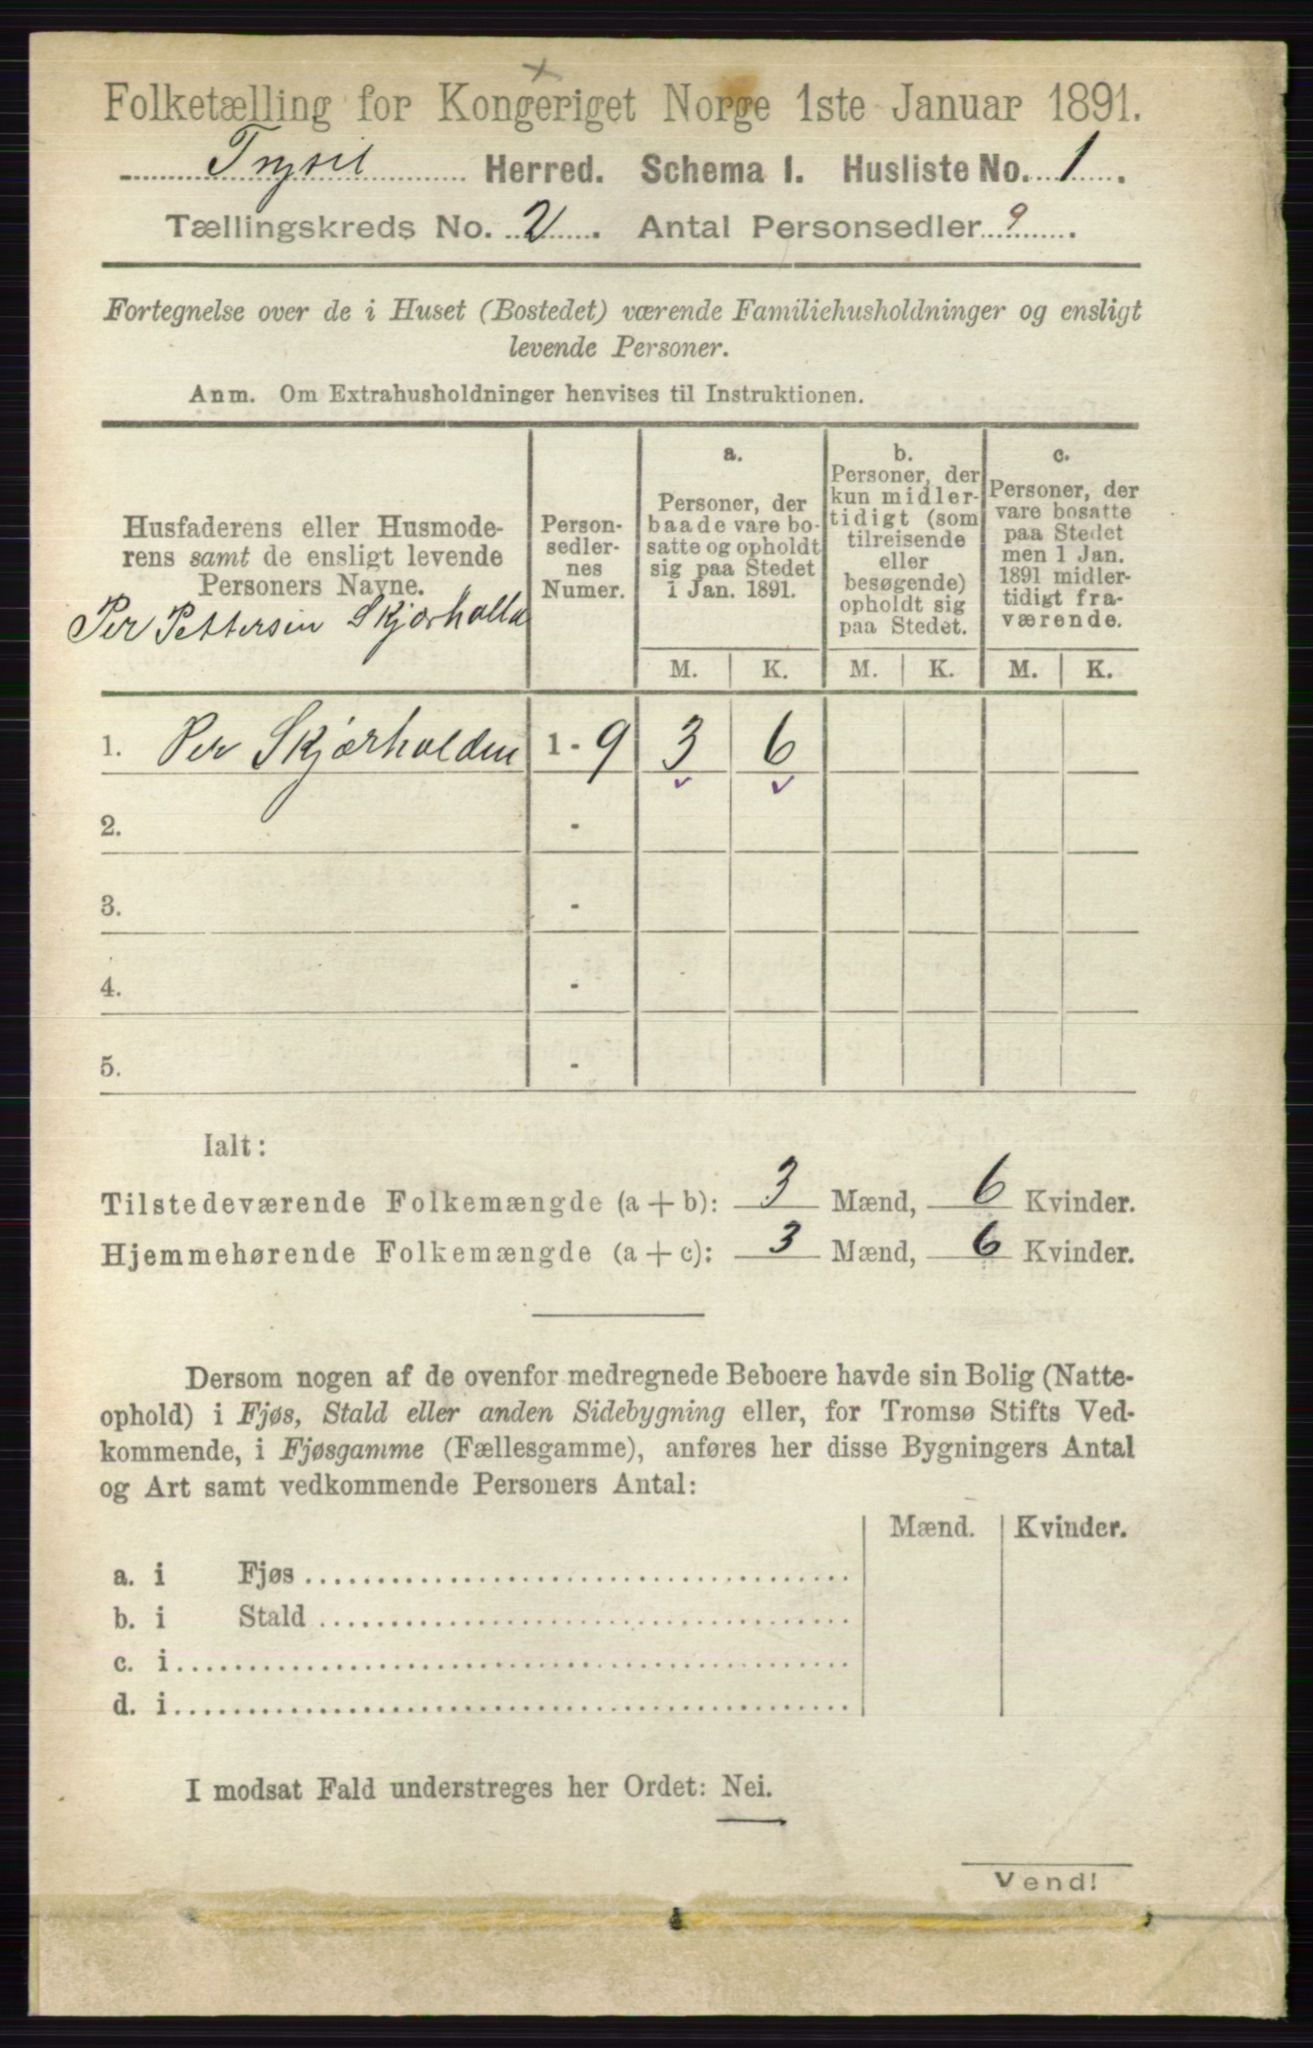 Folketælling for Kongeriget Norge 1ste Januar 1891.
Trysil Herred. Schema I. Husliste No. 1.
Tællingskreds No. 2. Antal Personsedler 9.
Fortegnelse over de i Huset (Bostedet) værende Familiehusholdninger og ensligt
levende Personer.
Anm. Om Extrahusholdninger henvises til Instruktionen.
Husfaderens eller Husmode-
rens samt de ensligt levende
Personers Navne.
Per Pettersen Skjærhalla
Person-
sedler-
nes
Numer.
a.
Personer, der
baade vare bo-
satte og opholdt
sig paa Stedet
1 Jan. 1891.
b.
Personer, der
kun midler-
tidigt (som
tilreisende
eller
besøgende)
opholdt sig
paa Stedet.
c.
Personer, der
vare bosatte
paa Stedet
men 1 Jan.
1891 midler-
tidigt fra-
værende.
M. K. M. K. M. K.
1. Per Skjærholden 1 - 9 3 6
2. -
3. -
4. -
5. -
Ialt:
Tilstedeværende Folkemængde (a + b): 3 Mænd, 6 Kvinder.
Hjemmehørende Folkemængde (a + c): 3 Mænd, 6 Kvinder.
Dersom nogen af de ovenfor medregnede Beboere havde sin Bolig (Natte-
ophold) i Fjøs, Stald eller anden Sidebygning eller, for Tromsø Stifts Ved-
kommende, i Fjøsgamme (Fællesgamme), anføres her disse Bygningers Antal
og Art samt vedkommende Personers Antal:
Mænd. Kvinder.
a. i Fjøs
b. i Stald
c. i
d. i
I modsat Fald understreges her Ordet: Nei.
Vend!